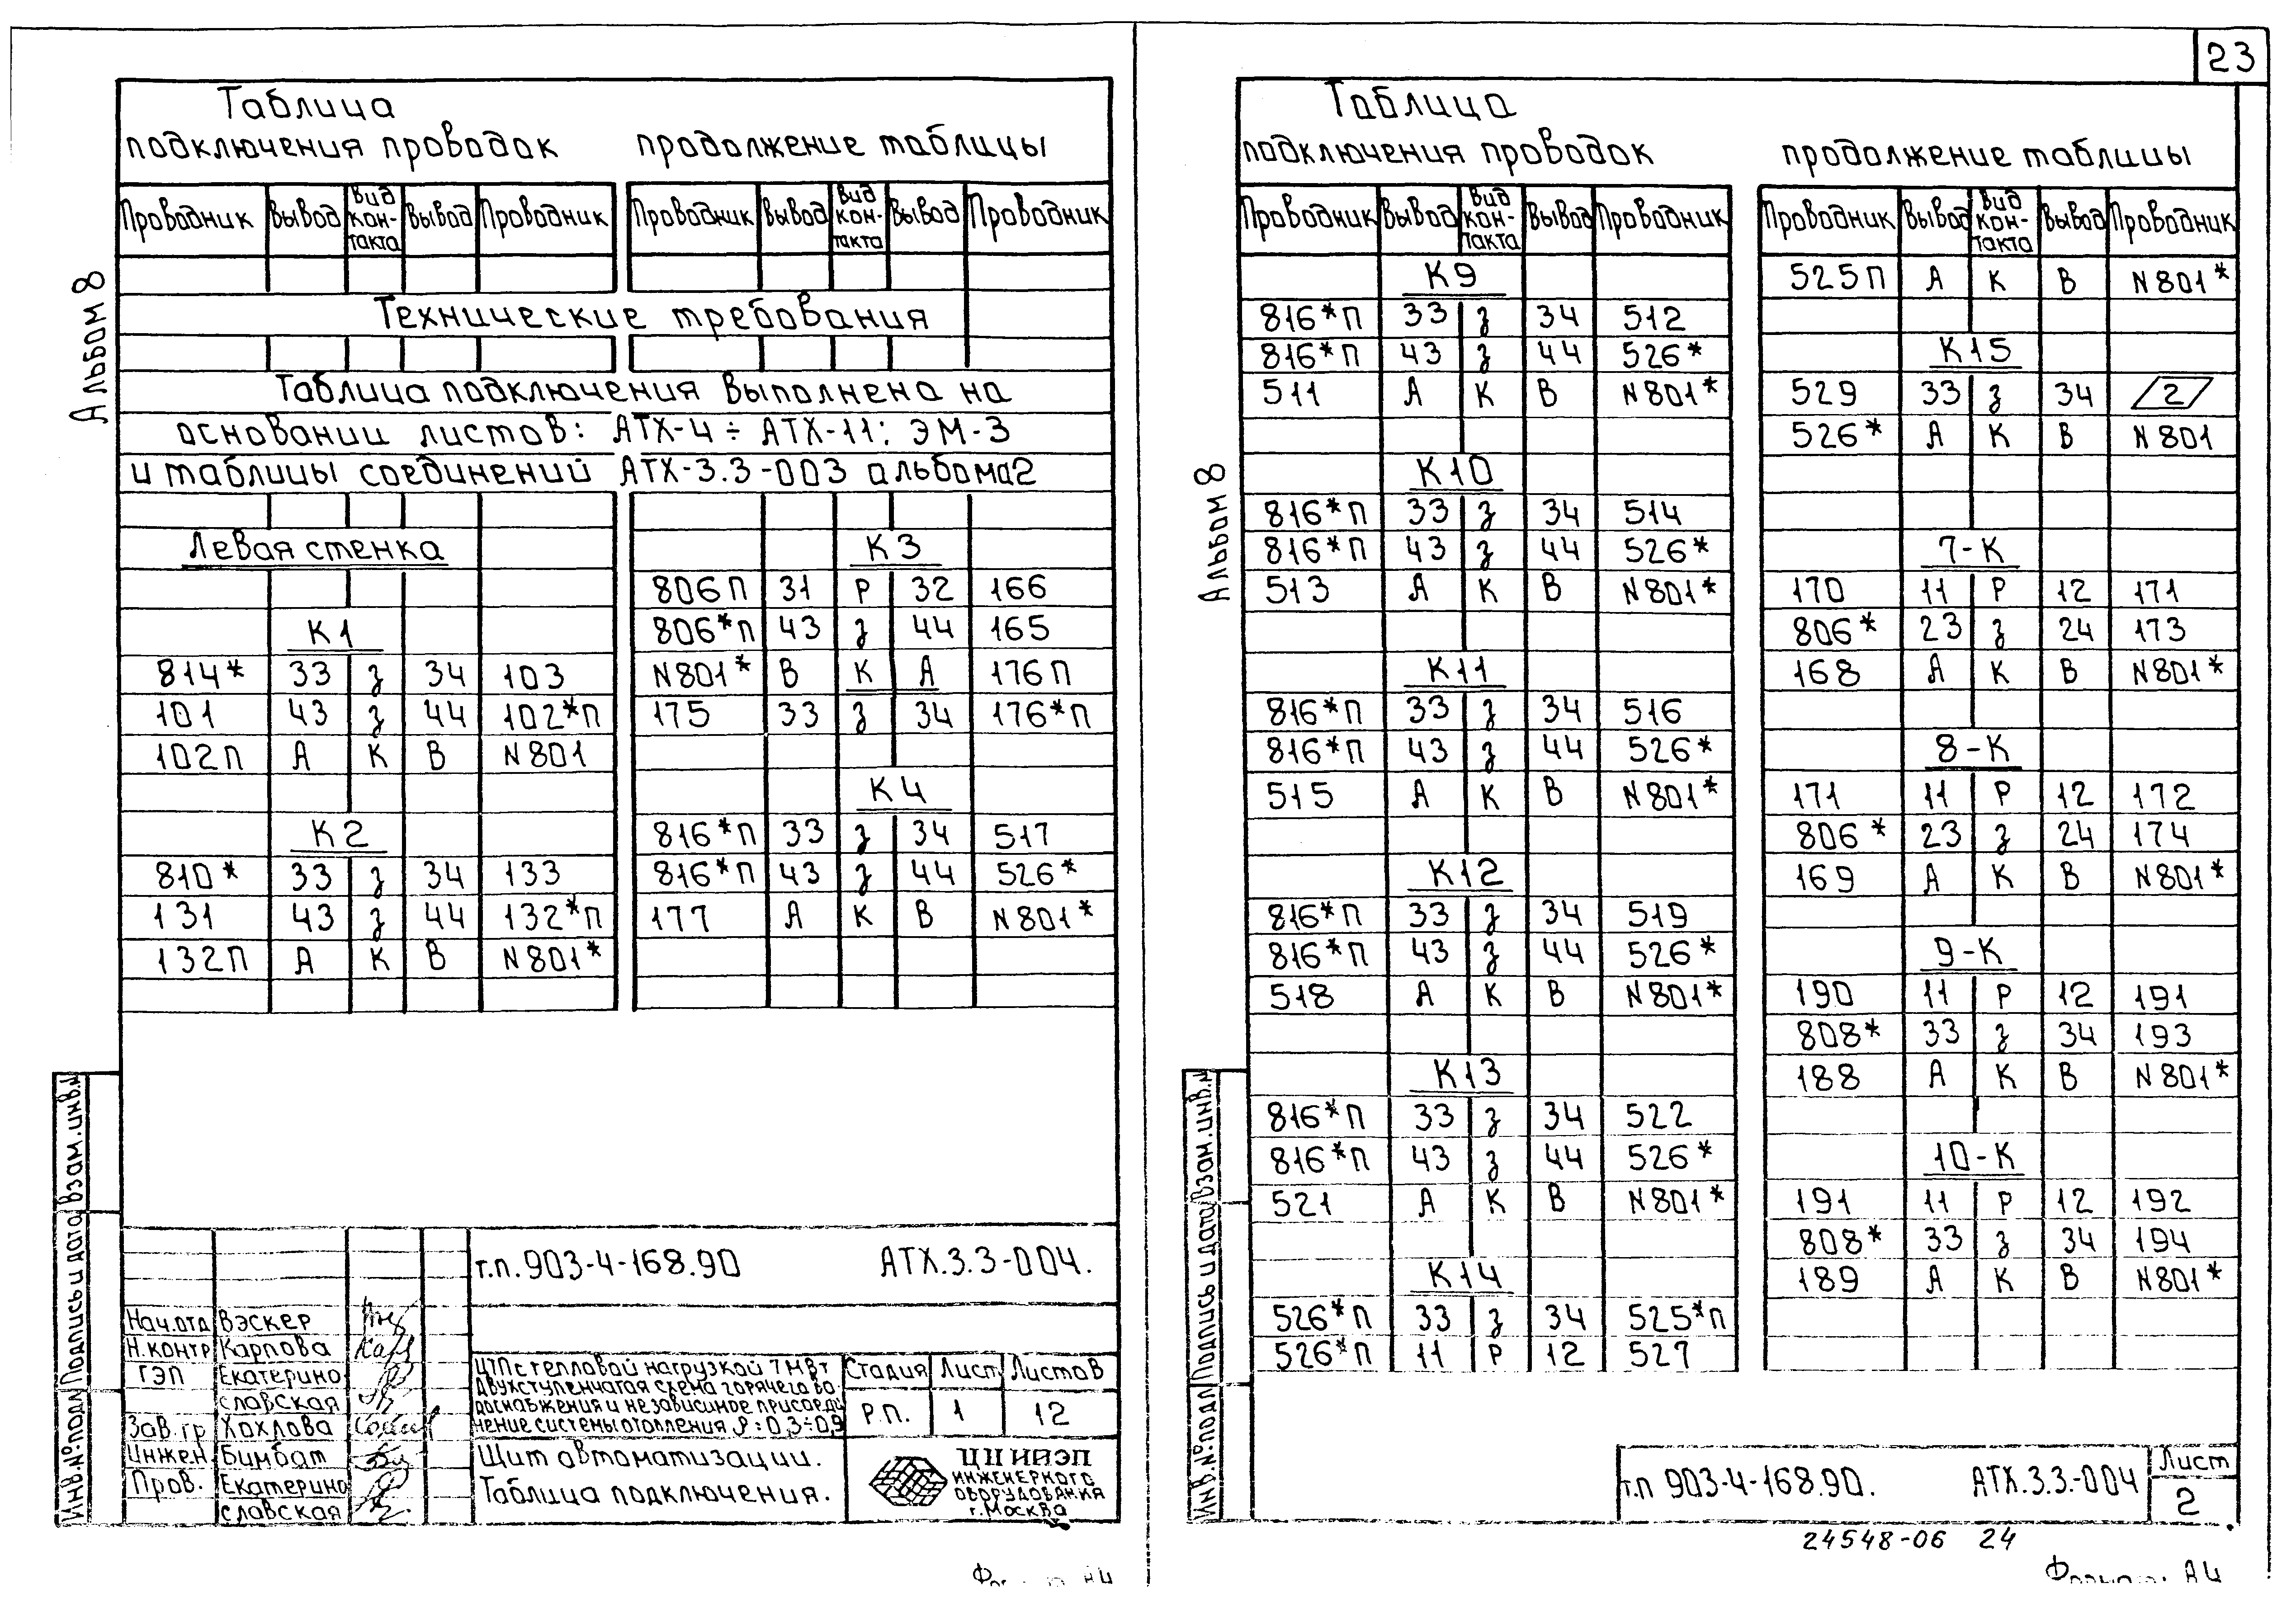 23
Таблица
подключения проводок
продолжение таблицы
Проводник Вывод Вид кон-такта Вывод Проводник
Проводник Вывод Вид кон-такта Вывод Проводник
Технические требования
Таблица подключения выполнена на
основании листов: АТХ-4 ÷ АТХ-11; ЭМ-3
и таблицы соединений АТХ-3.3-003 альбома 2
Левая стенка
К1
814* 33 з 34 103
101 43 з 44 102*П
102П А К В N801
К2
810* 33 з 34 133
131 43 з 44 132*П
132П А К В N801*
К3
806П 31 Р 32 166
806*П 43 з 44 165
N801* В К А 176П
175 33 з 34 176*П
К4
816*П 33 з 34 517
816*П 43 з 44 526*
177 А К В N801*
Альбом 8
Инв.№ подл Подпись и дата Взам.инв.№
т.п. 903-4-168.90 АТХ.3.3-004.
Нач.отд Вэскер
Н.контр Карпова
ГЭП Екатерино
славская
Зав.гр Хохлова
Инжен. Бимбат
Пров. Екатерино
славская
ЦТП с тепловой нагрузкой 7 МВт
Двухступенчатая схема горячего во-
доснабжения и независимое присоеди
нение системы отопления ρ=0,3÷0,9
Стадия Лист Листов
Р.П. 1 12
Щит автоматизации.
Таблица подключения.
ЦНИИЭП
ИНЖЕНЕРНОГО
ОБОРУДОВАНИЯ
г.Москва
Таблица
подключения проводок
продолжение таблицы
Проводник Вывод Вид кон-такта Вывод Проводник
Проводник Вывод Вид кон-такта Вывод Проводник
К9
816*П 33 з 34 512
816*П 43 з 44 526*
511 А К В N801*
К10
816*П 33 з 34 514
816*П 43 з 44 526*
513 А К В N801*
К11
816*П 33 з 34 516
816*П 43 з 44 526*
515 А К В N801*
К12
816*П 33 з 34 519
816*П 43 з 44 526*
518 А К В N801*
К13
816*П 33 з 34 522
816*П 43 з 44 526*
521 А К В N801*
К14
526*П 33 з 34 525*П
526*П 11 Р 12 527
525П А К В N801*
К15
529 33 з 34 2
526* А К В N801
7-К
170 11 Р 12 171
806* 23 з 24 173
168 А К В N801*
8-К
171 11 Р 12 172
806* 23 з 24 174
169 А К В N801*
9-К
190 11 Р 12 191
808* 33 з 34 193
188 А К В N801*
10-К
191 11 Р 12 192
808* 33 з 34 194
189 А К В N801*
Альбом 8
Инв.№ подл Подпись и дата Взам.инв.№
т.п 903-4-168.90. АТХ.3.3.-004
Лист
2
24548-06 24